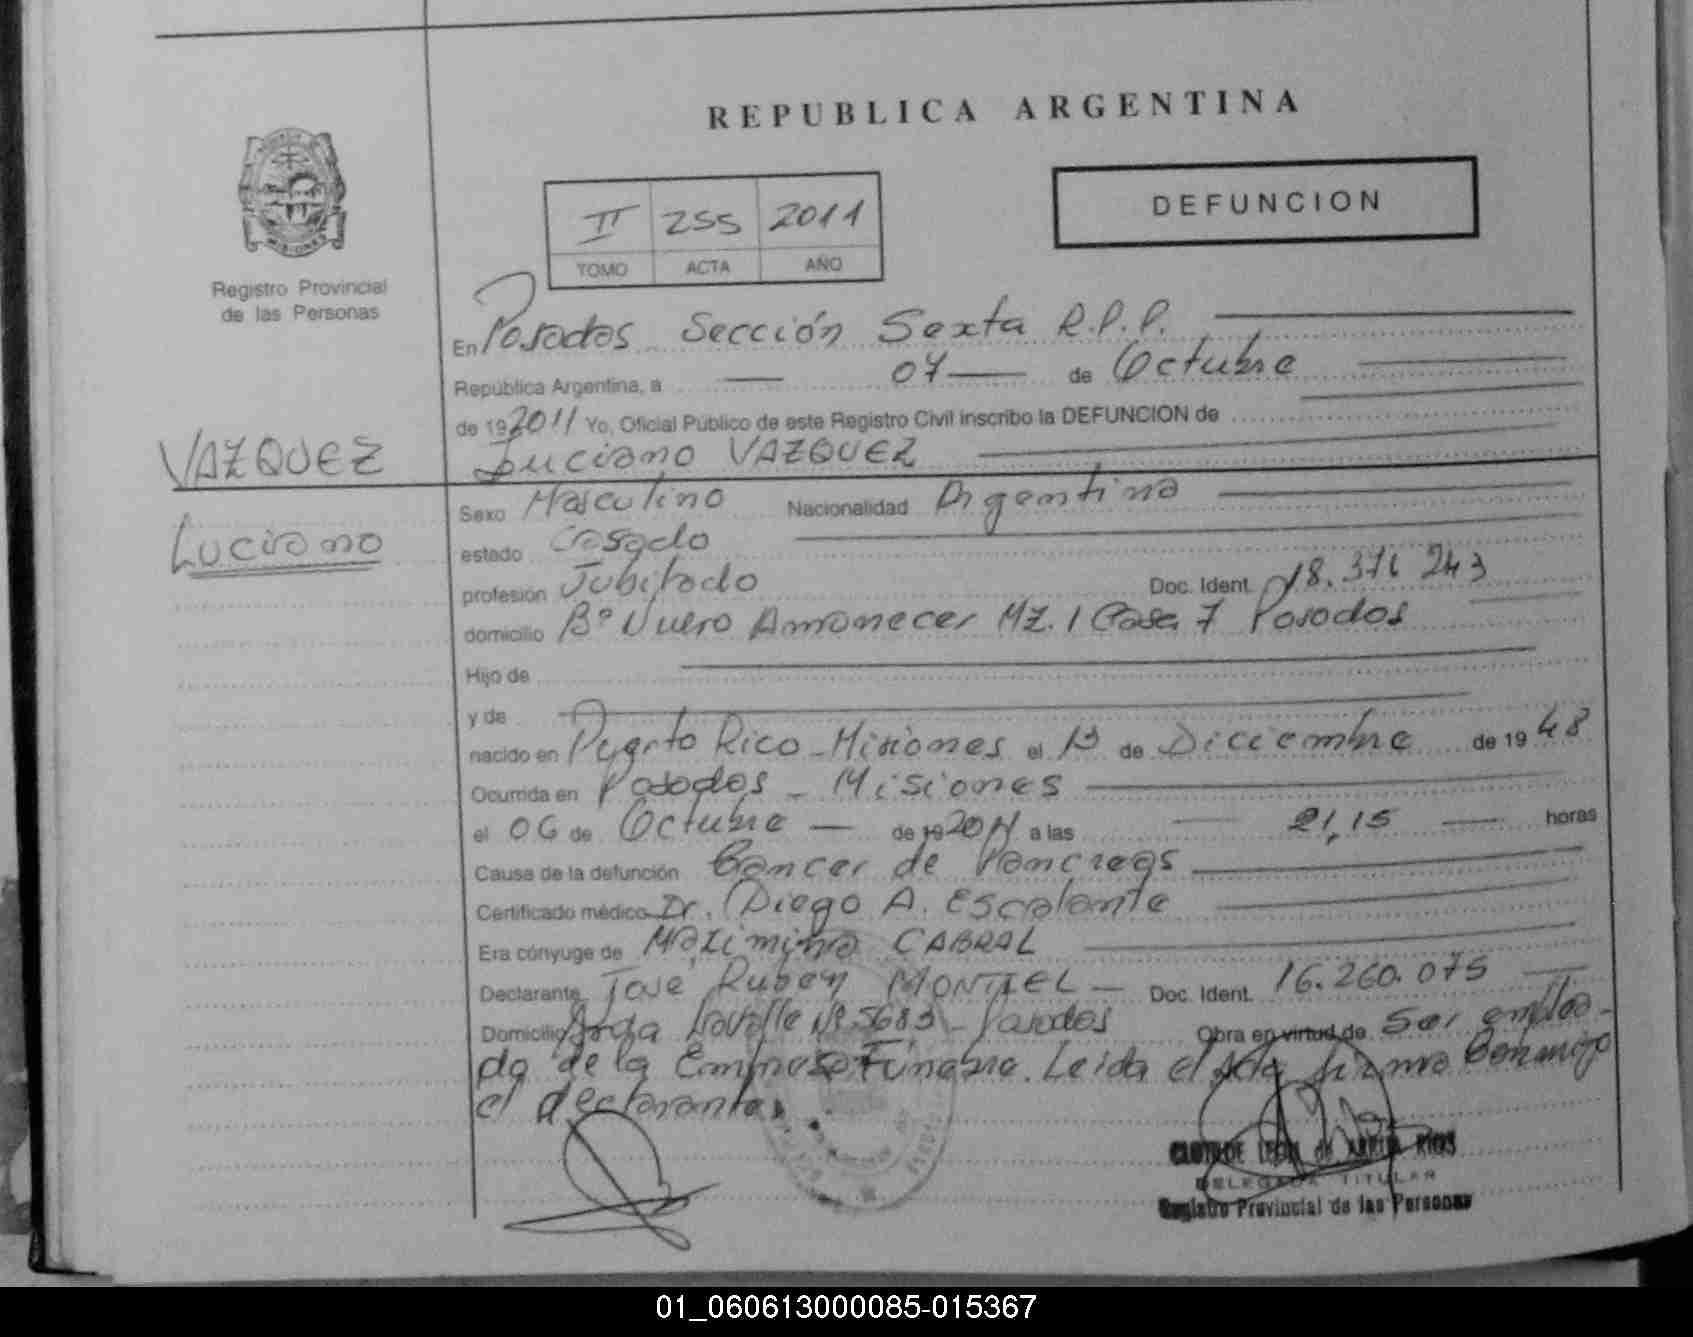 REPUBLICA ARGENTINA
DEFUNCION
II 255 2011
TOMO ACTA AÑO
MISIONES
Registro Provincial
de las Personas
En Posadas Sección Sexta R.P.P.
República Argentina, a 07 de Octubre
de 19 2011 Yo, Oficial Público de este Registro Civil inscribo la DEFUNCION de
VAZQUEZ
Luciano VAZQUEZ
Luciano
Sexo Masculino Nacionalidad Argentina
estado Casado
profesión Jubilado Doc. Ident. 18.371 243
domicilio Bº Nuevo Amanecer MZ. 1 Casa 7 Posadas
Hijo de
y de
nacido en Puerto Rico - Misiones el 13 de Diciembre de 19 48
Ocurrida en Posadas - Misiones
el 06 de Octubre de 19 2011 a las 21,15 horas
Causa de la defunción Cancer de Pancreas
Certificado médico Dr. Diego A. Escalante
Era cónyuge de Maximina CABRAL
Declarante José Ruben MONTIEL Doc. Ident. 16.260.075
Domicilio Lavalle Nº 5683 - Posadas Obra en virtud de Ser emplea-
do de la Empresa Funebre. Leida el Acta firma Conmigo
el declarante.
CLOTILDE LEON de RIOS
DELEGADA TITULAR
Registro Provincial de las Personas
01_060613000085-015367